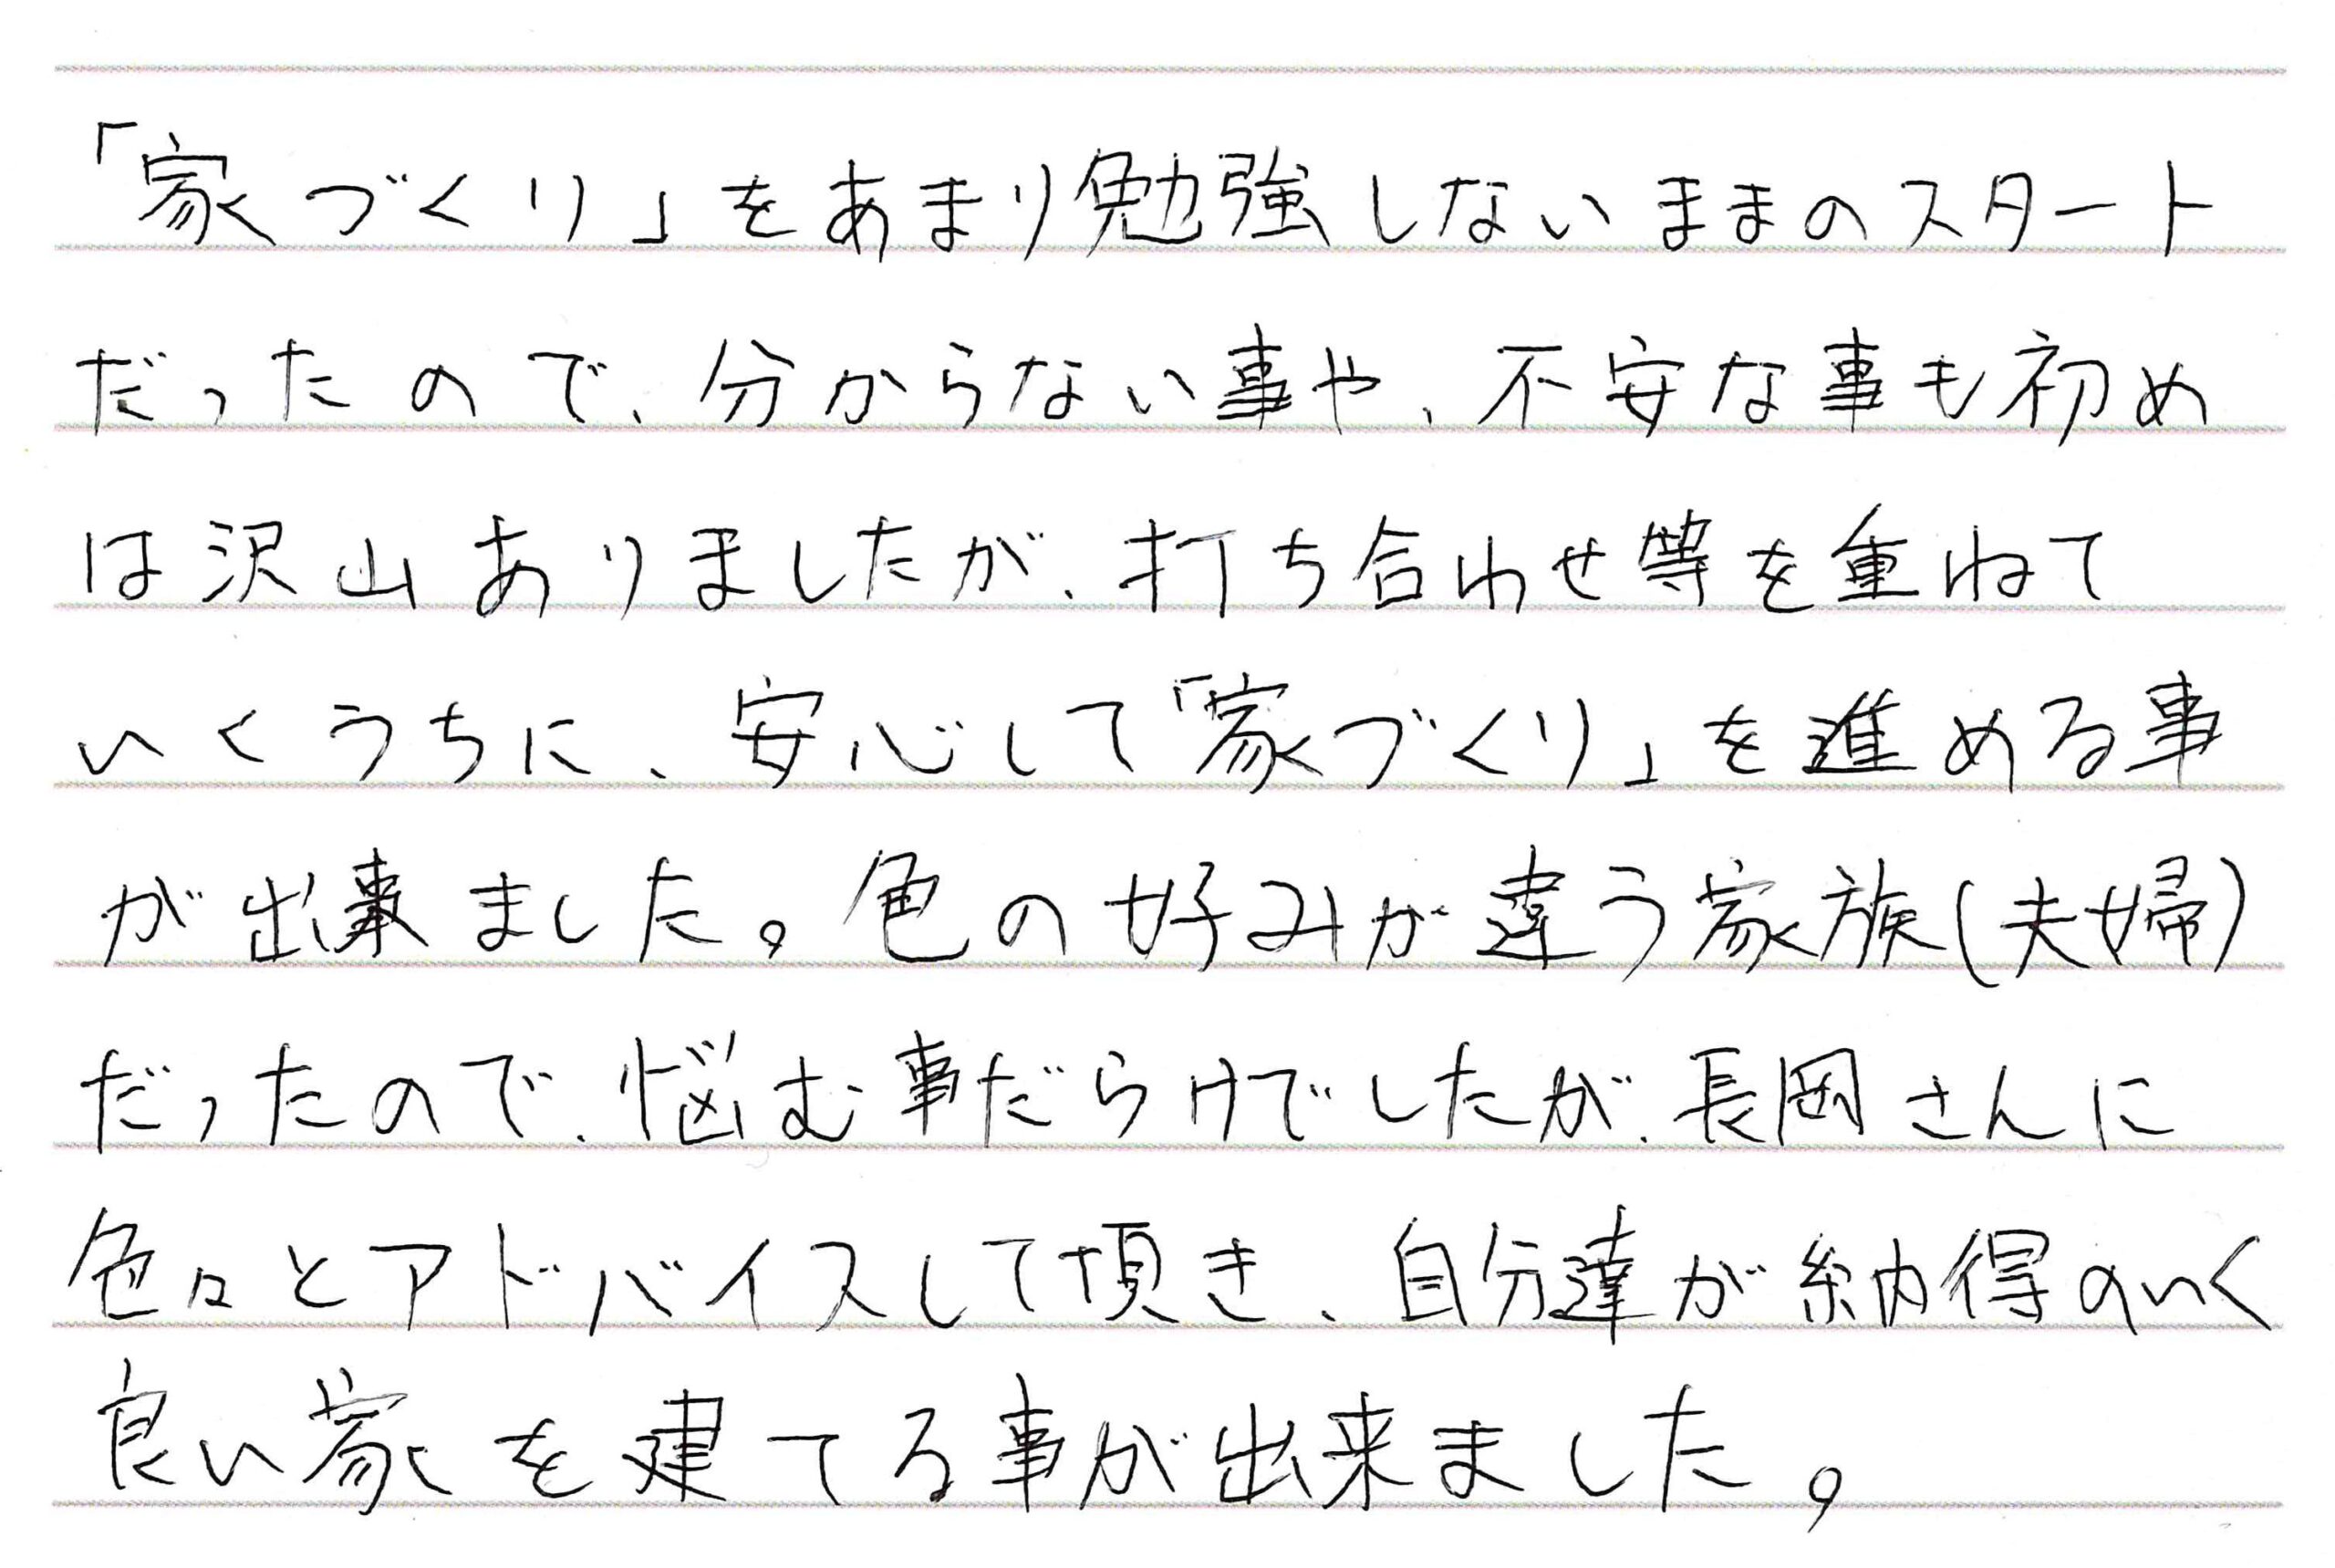 「家づくり」をあまり勉強しないままのスタート
だったので、分からない事や、不安な事も初め
は沢山ありましたが、打ち合わせ等を重ねて
いくうちに、安心して「家づくり」を進める事
が出来ました。色の好みが違う家族(夫婦)
だったので、悩む事だらけでしたが、長岡さんに
色々とアドバイスして頂き、自分達が納得のいく
良い家を建てる事が出来ました。